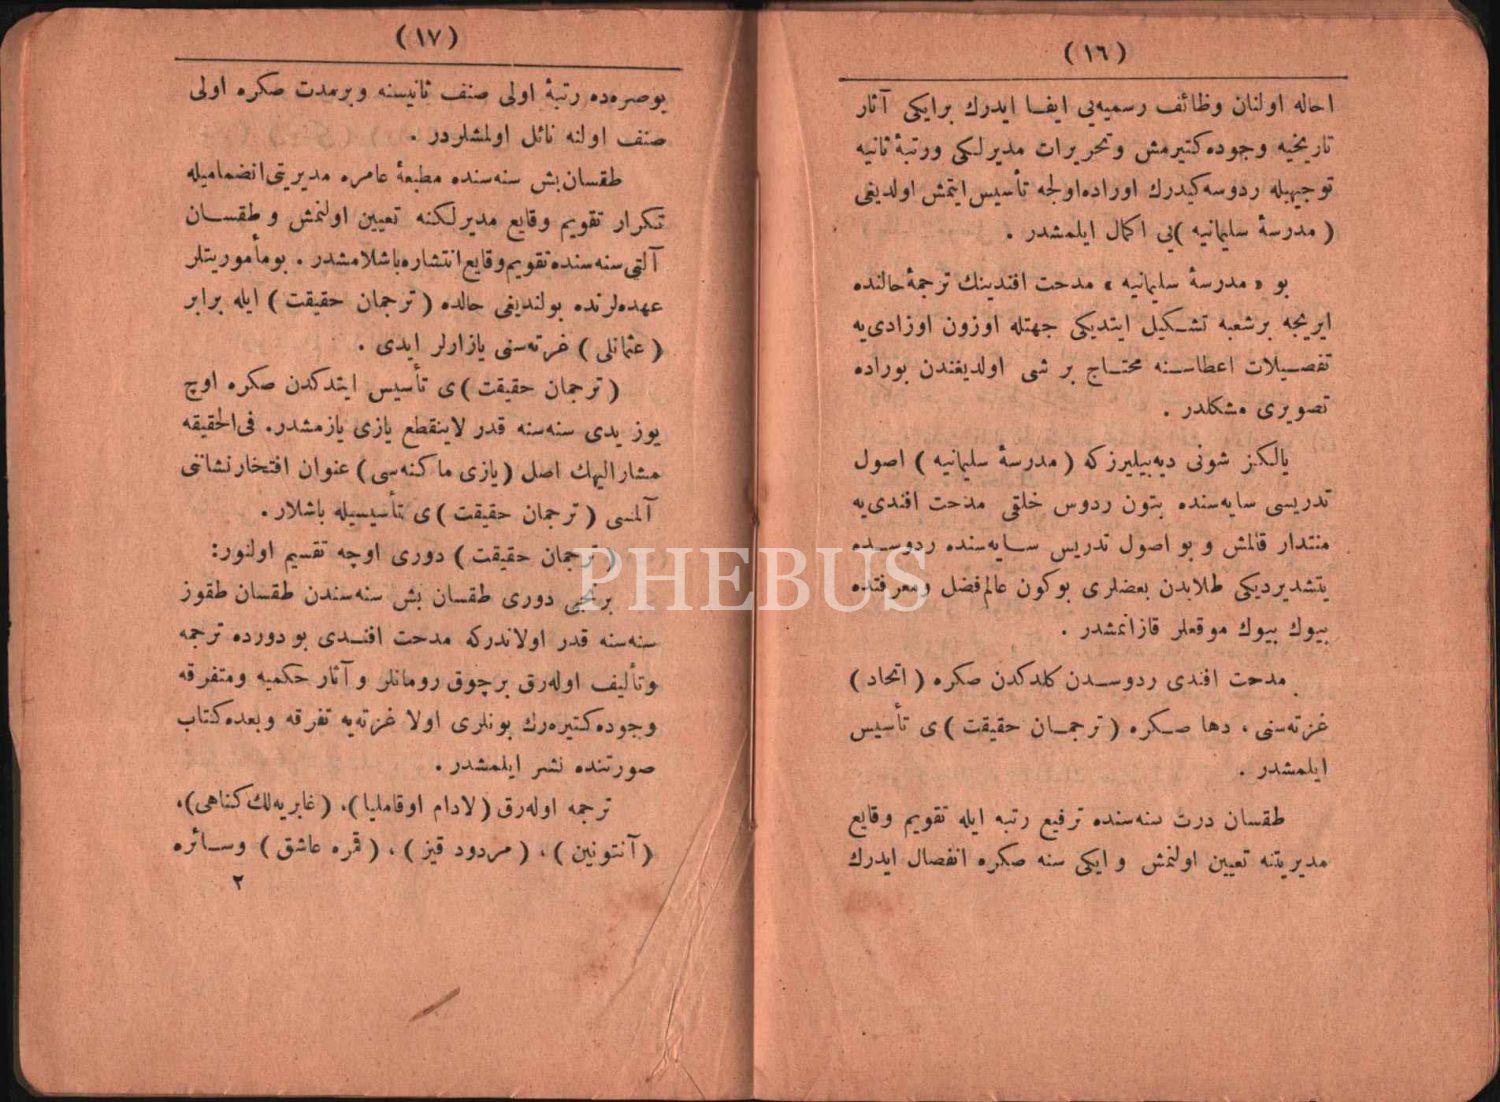 (١٦)
احاله اولنان وظائف رسميه‌يی ايفا ايدرك برايكی آثار
تاريخيه وجوده‌كتيرمش وتحريرات مديرلكی ورتبهٔ ثانيه
توجيهيله ردوسه‌كيدرك اوراده‌اولجه تأسيس ايتمش اولديغی
( مدرسهٔ سليمانيه )يی اكمال ايلمشدر .
بو « مدرسهٔ سليمانيه » مدحت افندينك ترجمهٔ‌حالنده
ايريجه برشعبه تشكيل ايتديكی جهتله اوزون اوزادی‌يه
تفصيلات اعطاسنه محتاج بر شی اولديغندن بوراده
تصويری مشكلدر .
يالكز شونی ديه‌بيليرزكه ( مدرسهٔ سليمانيه ) اصول
تدريسی سايه‌سنده بتون ردوس خلقی مدحت افندی‌يه
منتدار قالمش و بو اصول تدريس سايه‌سنده ردوسده
يتشديرديكی طلابدن بعضلری بوكون عالم‌فضل ومعرفتده
بيوك بيوك موقعلر قازانمشدر .
مدحت افندی ردوسدن كلدكدن صكره ( اتحاد )
غزته‌سنی ، دها صكره ( ترجمان حقيقت )ی تأسيس
ايلمشدر .
طقسان درت سنه‌سنده ترفيع رتبه ايله تقويم وقايع
مديريتنه تعيين اولنمش و ايكی سنه صكره انفصال ايدرك
(١٧)
بوصره‌ده رتبهٔ اولی صنف ثانيسنه وبرمدت صكره اولی
صنف اولنه نائل اولمشلردر .
طقسان‌بش سنه‌سنده مطبعهٔ عامره مديريتی‌انضماميله
تكرار تقويم وقايع مديرلكنه تعيين اولنمش وطقسان
آلتی‌سنه‌سنده‌تقويم‌وقايع‌انتشاره‌باشلامشدر . بومأموريتلر
عهده‌لرنده بولنديغی حالده ( ترجمان حقيقت ) ايله برابر
( عثمانلی ) غزته‌سنی يازارلر ايدی .
( ترجمان حقيقت )ی تأسيس ايتدكدن صكره اوچ
يوز يدی سنه‌سنه قدر لاينقطع يازی يازمشدر. فی‌الحقيقه
مشاراليهك اصل ( يازی ماكنه‌سی ) عنوان افتخارنشاننی
آلمسی ( ترجمان حقيقت )ی تأسيسيله باشلار .
( ترجمان حقيقت ) دوری اوچه تقسيم اولنور:
برنجی دوری طقسان بش سنه‌سندن طقسان طقوز
سنه‌سنه قدر اولاندركه مدحت افندی بو دورده ترجمه
وتأليف اوله‌رق برچوق رومانلر و آثار حكميه ومتفرقه
وجوده‌كتيره‌رك بونلری اولا غزته‌يه تفرقه وبعده‌كتاب
صورتنده نشر ايلمشدر .
ترجمه اوله‌رق (لادام اوقامليا)، (غابريه‌لك‌كناهی)،
( آنتونين ) ، ( مردود قيز ) ، ( قمره عاشق ) وسائره
٢
PHEBUS